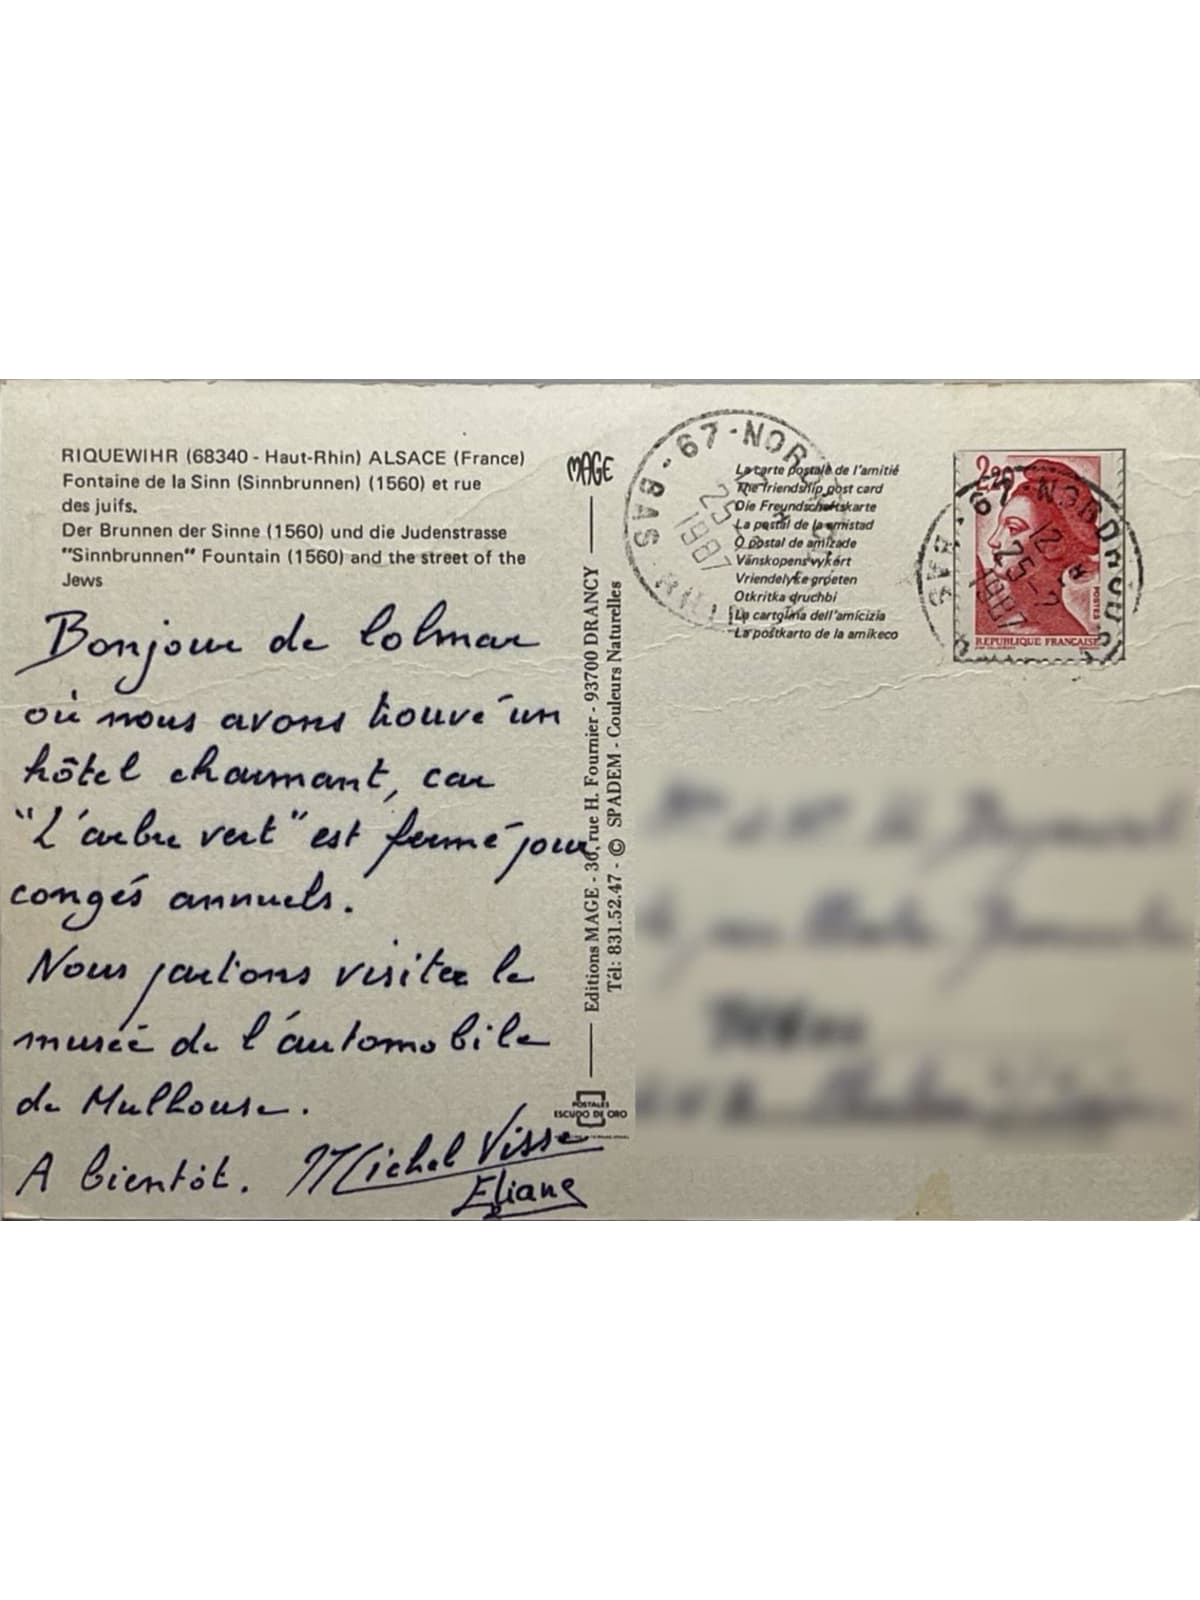 RIQUEWIHR (68340 - Haut-Rhin) ALSACE (France)
Fontaine de la Sinn (Sinnbrunnen) (1560) et rue
des juifs.
Der Brunnen der Sinne (1560) und die Judenstrasse
"Sinnbrunnen" Fountain (1560) and the street of the
Jews
Bonjour de Colmar
où nous avons trouvé un
hôtel charmant, car
"L'arbre vert" est fermé pour
congés annuels.
Nous partons visiter le
musée de l'automobile
de Mulhouse.
A bientôt. Michel Visse
Eliane
MAGE
Editions MAGE - 30, rue H. Fournier - 93700 DRANCY
Tél: 831.52.47 - © SPADEM - Couleurs Naturelles
POSTALES
ESCUDO DE ORO
67 - NOR
BAS - RHIN
25
1987
La carte postale de l'amitié
The friendship post card
Die Freundschaftskarte
La postal de la amistad
O postal de amizade
Vänskopens vykört
Vriendelyke groeten
Otkritka druchbi
La cartolina dell'amicizia
La postkarto de la amikeco
2,20
POSTES
REPUBLIQUE FRANÇAISE
67 - NORDHOUSE
BAS
12 H
25-2
1987